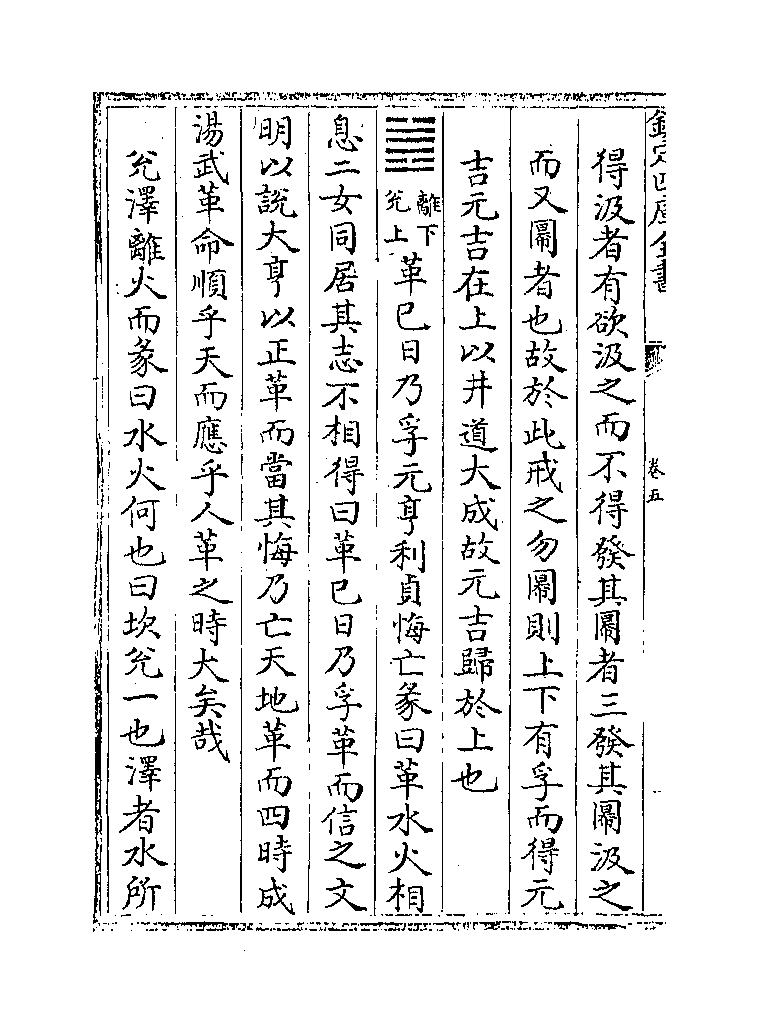 欽定四庫全書
卷五
得汲者有欲汲之而不得發其羃者三發其羃汲之
而又羃者也故於此戒之勿羃則上下有孚而得元
吉元吉在上以井道大成故元吉歸於上也
離下
兊上
革巳日乃孚元亨利貞悔亡彖曰革水火相
息二女同居其志不相得曰革巳日乃孚革而信之文
明以說大亨以正革而當其悔乃亡天地革而四時成
湯武革命順乎天而應乎人革之時大矣哉
兊澤離火而彖曰水火何也曰坎兊一也澤者水所